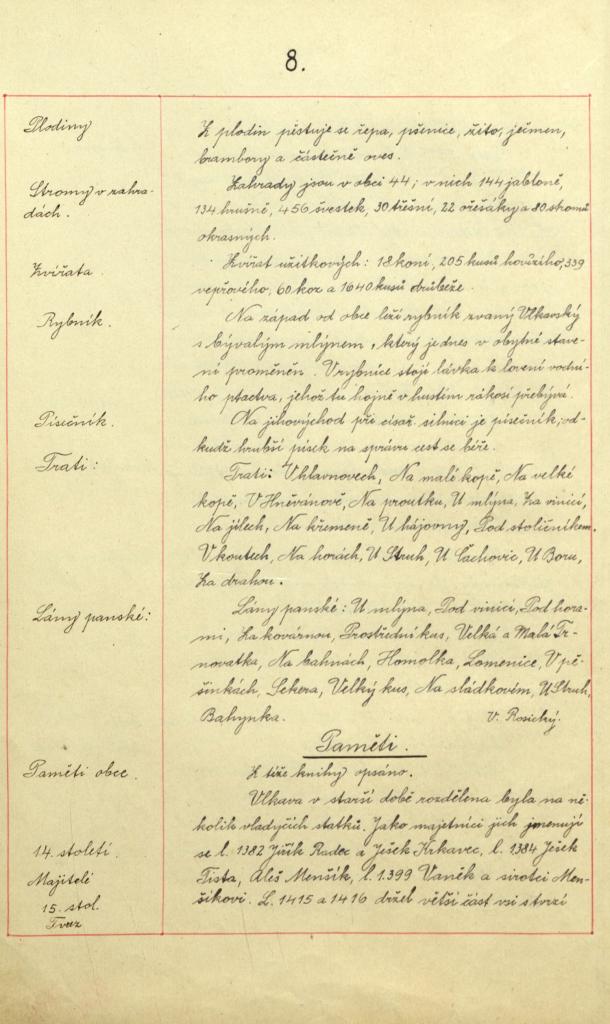 8.
Plodiny
Z plodin pěstuje se řepa, pšenice, žito, ječmen,
brambory a částečně oves.
Stromy v zahra-
dách.
Zahrady jsou v obci 44; v nich 144 jabloně,
134 hrušně, 456 švestek, 30 třešní, 22 ořešáky a 80 stromů
okrasných.
Zvířata.
Zvířat užitkových: 18 koní, 205 kusů hovězího, 339
vepřového, 60 koz a 1640 kusů drůbeže.
Rybník.
Na západ od obce leží rybník zvaný Vlkavský
s bývalým mlýnem, který je dnes v obytné stave-
ní proměněn. V rybnice stojí lávka k lovení vodní-
ho ptactva, jehož tu hojně v hustém rákosí přebývá.
Písečník.
Na jihovýchod při císař. silnici je písečník, od-
kudž hrubší písek na správu cest se béře.
Trati:
Trati: V hlavnovech, Na malé kopě, Na velké
kopě, V Hněvánově, Na proutku, U mlýna, Za vinicí,
Na jílech, Na křemeně, U hájovny, Pod stoličníkem,
V koutech, Na horách, U Struh, U Čachovic, U Boru,
Za drahou.
Lány panské:
Lány panské: U mlýna, Pod vinicí, Pod hora-
mi, Za kovárnou, Prostřední kus, Velká a Malá Tr-
novatka, Na bahnách, Homolka, Lomenice, V pě-
šinkách, Sekera, Velký kus, Na sládkovém, U Struh,
Bahynka. V. Rosický.
Paměti.
Paměti obce.
Z téže knihy opsáno.
Vlkava v starší době rozdělena byla na ně-
kolik vladyčích statků. Jako majetníci jich jmenují
14. století.
se l. 1382 Jiřík Radec a Ješek Krkavec, l. 1384 Ješek
Majitelé
Tista, Aleš Menšík, l. 1399 Vaněk a sirotci Men-
15. stol.
šíkovi. L. 1415 a 1416 držel větší část vsi s tvrzí
Tvrz